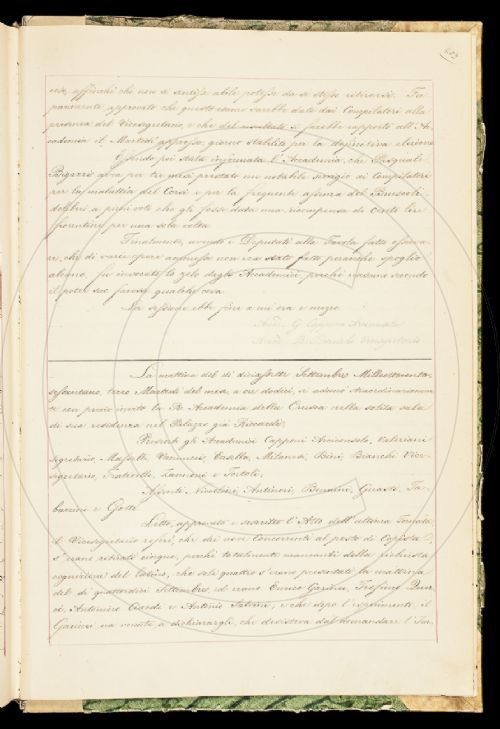 essi, affinchè chi non si sentisse abile potesse da se stesso ritirarsi. Fu
pienamente approvato che questo esame sarebbe dato dai Compilatori alla
presenza del Vicesegretario, e che del resultato si farebbe rapporto all'Ac-
cademia il Martedì appresso, giorno stabilito per la definitiva elezione.
Essendo poi stata informata l'Accademia, che Pasquale
aveva per tre mesi prestato un notabile servigio ai Compilatori
per la malattia del Corsi e per la frequente assenza del
deliberò a pieni voti che gli fosse data una ricompensa di Cento lire
fiorentine per una sola volta.
Finalmente, avendo i Deputati alla Tavola fatto osserva-
re, che di varie opere ammesse non era stato fatto peranche spoglio
alcuno, fu invocato lo zelo degli Accademici, perchè ciascuno secondo
il poter suo facesse qualche cosa.
La sessione ebbe fine a un'ora e mezzo.
Acad. G. Capponi Arciconsolo
Acad. B. Bianchi Vicesegretario
La mattina del dì diciassette Settembre Milleottocento-
sessantuno, terzo Martedì del mese, a ore dodici, si adunò straordinariamen-
te con previo invito la R. Accademia della Crusca nella solita sala
di sua residenza nel Palazzo già Riccardi.
Presenti gli Accademici Capponi Arciconsolo, Valeriani
Segretario, Maffei, Vannucci, Casella, Milanesi, Bini, Bianchi Vice-
segretario, Fraticelli, Zannoni e Tortoli.
Assenti Nicolini, Antinori, Guasti, Ta-
barrini e Giotti.
Letto, approvato e scritto l'Atto dell'ultima Tornata
il Vicesegretario riferì, che dei nove Concorrenti al posto di Copista
s'erano ritirati cinque, perchè totalmente mancanti della richiesta
cognizione del latino, che soli quattro s'erano presentati la mattina
del dì quattordici Settembre, ed erano Enrico Garinei,
Antonio, e che dopo l'esperimento, il
Garinei era venuto a dichiarargli, che desisteva dal domandare l'Im-